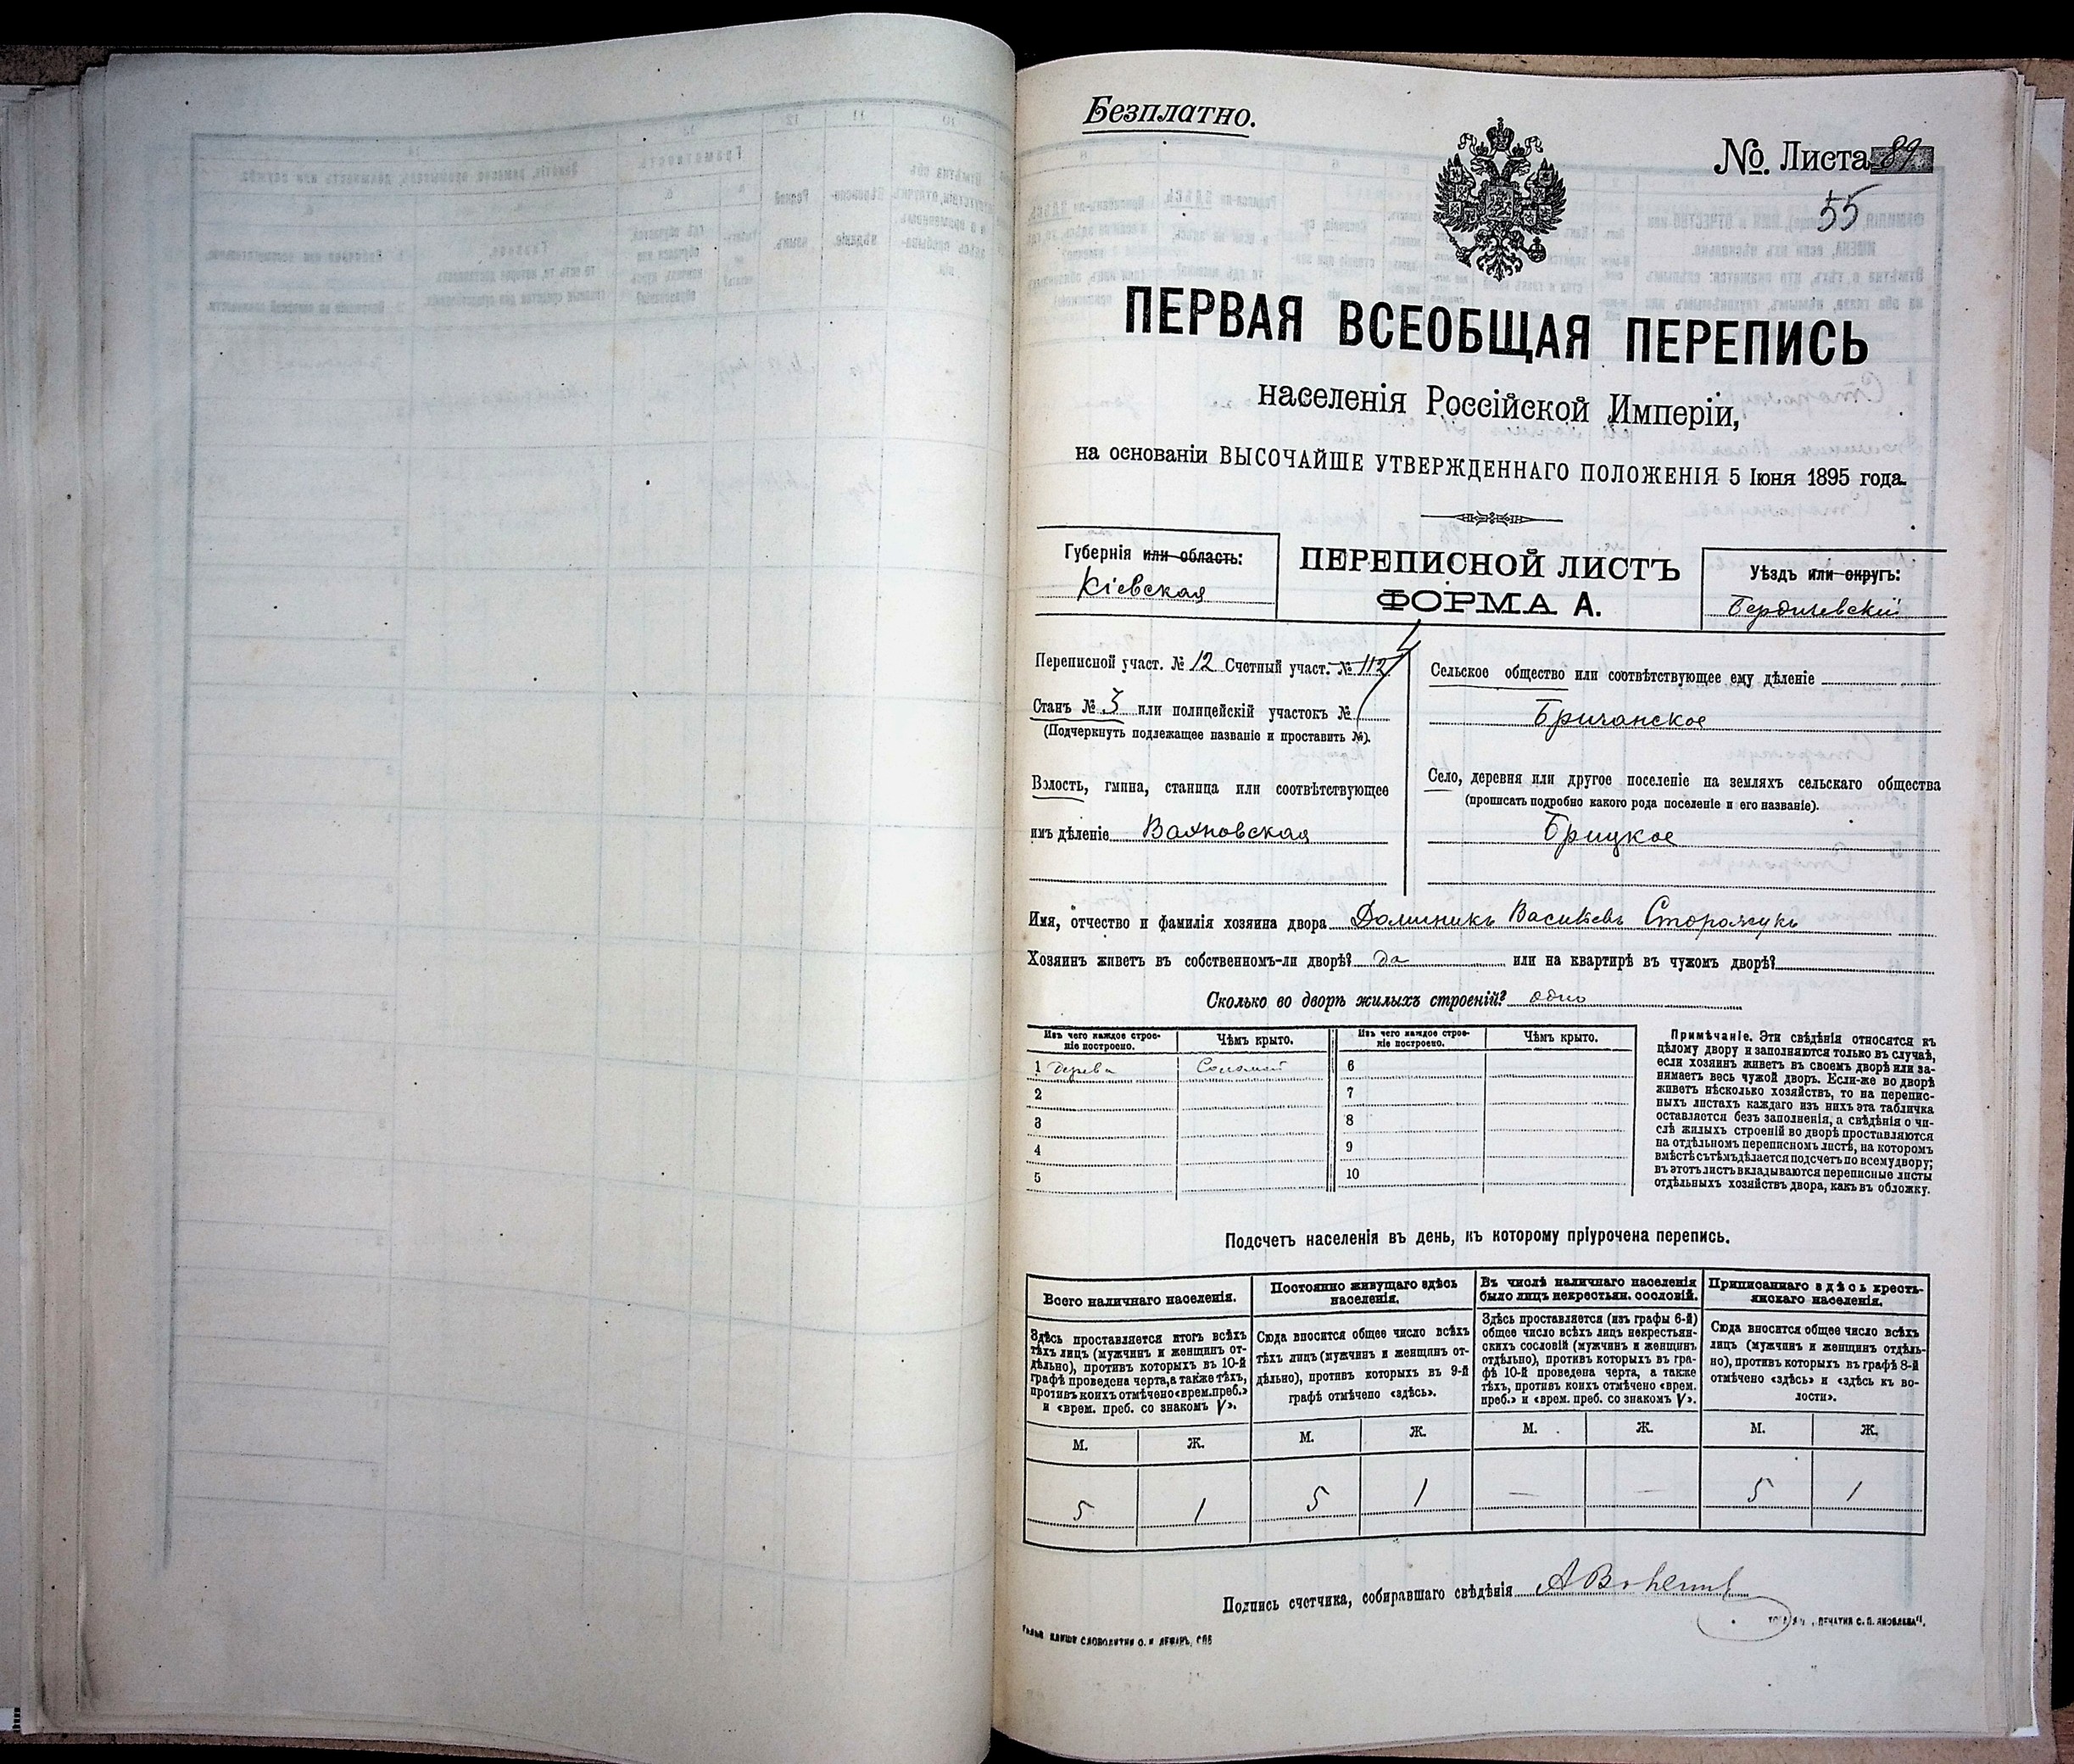 Безплатно.
№. Листа 89
55
ПЕРВАЯ ВСЕОБЩАЯ ПЕРЕПИСЬ
населенія Россійской Имперіи,
на основаніи ВЫСОЧАЙШЕ УТВЕРЖДЕННАГО ПОЛОЖЕНІЯ 5 Іюня 1895 года.
Губернія или область:
Кіевская
ПЕРЕПИСНОЙ ЛИСТЪ
ФОРМА А.
Уѣздъ или округъ:
Бердичевскій
Переписной участ. № 12 Счетный участ. № 112
Станъ № 3 или полицейскій участокъ №
(Подчеркнуть подлежащее названіе и проставить №).
Волость, гмина, станица или соотвѣтствующее
имъ дѣленіе Вахновская
Сельское общество или соотвѣтствующее ему дѣленіе
Бричанское
Село, деревня или другое поселеніе на земляхъ сельскаго общества
(прописать подробно какого рода поселеніе и его названіе).
Брицкое
Имя, отчество и фамилія хозяина двора Доминикъ Васильевъ Сторожукъ
Хозяинъ живетъ въ собственномъ-ли дворѣ? да или на квартирѣ въ чужомъ дворѣ?
Сколько во дворѣ жилыхъ строеній? одно
Изъ чего каждое строе-
ніе построено.
Чѣмъ крыто.
Изъ чего каждое строе-
ніе построено.
Чѣмъ крыто.
1 дерева Соломой 6
2 7
3 8
4 9
5 10
Примѣчаніе. Эти свѣдѣнія относятся къ
цѣлому двору и заполняются только въ случаѣ,
если хозяинъ живетъ въ своемъ дворѣ или за-
нимаетъ весь чужой дворъ. Если-же во дворѣ
живетъ нѣсколько хозяйствъ, то на перепис-
ныхъ листахъ каждаго изъ нихъ эта табличка
оставляется безъ заполненія, а свѣдѣнія о чи-
слѣ жилыхъ строеній во дворѣ проставляются
на отдѣльномъ переписномъ листѣ, на которомъ
вмѣстѣ съ тѣмъ дѣлается подсчетъ по всему двору;
въ этотъ листъ вкладываются переписные листы
отдѣльныхъ хозяйствъ двора, какъ въ обложку.
Подсчетъ населенія въ день, къ которому пріурочена перепись.
Всего наличнаго населенія.
Здѣсь проставляется итогъ всѣхъ
тѣхъ лицъ (мужчинъ и женщинъ от-
дѣльно), противъ которыхъ въ 10-й
графѣ проведена черта, а также тѣхъ,
противъ коихъ отмѣчено «врем. преб.»
и «врем. преб. со знакомъ V».
Постоянно живущаго здѣсь
населенія.
Сюда вносится общее число всѣхъ
тѣхъ лицъ (мужчинъ и женщинъ от-
дѣльно), противъ которыхъ въ 9-й
графѣ отмѣчено «здѣсь».
Въ числѣ наличнаго населенія
было лицъ некрестьян. сословій.
Здѣсь проставляется (изъ графы 6-й)
общее число всѣхъ лицъ некрестьян-
скихъ сословій (мужчинъ и женщинъ
отдѣльно), противъ которыхъ въ гра-
фѣ 10-й проведена черта, а также
тѣхъ, противъ коихъ отмѣчено «врем.
преб.» и «врем. преб. со знакомъ V».
Приписаннаго здѣсь кресть-
янскаго населенія.
Сюда вносится общее число всѣхъ
лицъ (мужчинъ и женщинъ отдѣль-
но), противъ которыхъ въ графѣ 8-й
отмѣчено «здѣсь» и «здѣсь къ во-
лости».
М. Ж. М. Ж. М. Ж. М. Ж.
5 1 5 1 — — 5 1
Подпись счетчика, собиравшаго свѣдѣнія
ПЕЧАТНЯ С. П. ЯКОВЛЕВА".
СЛОВОЛИТНИ О. И. ЛЕМАНЪ, СПБ